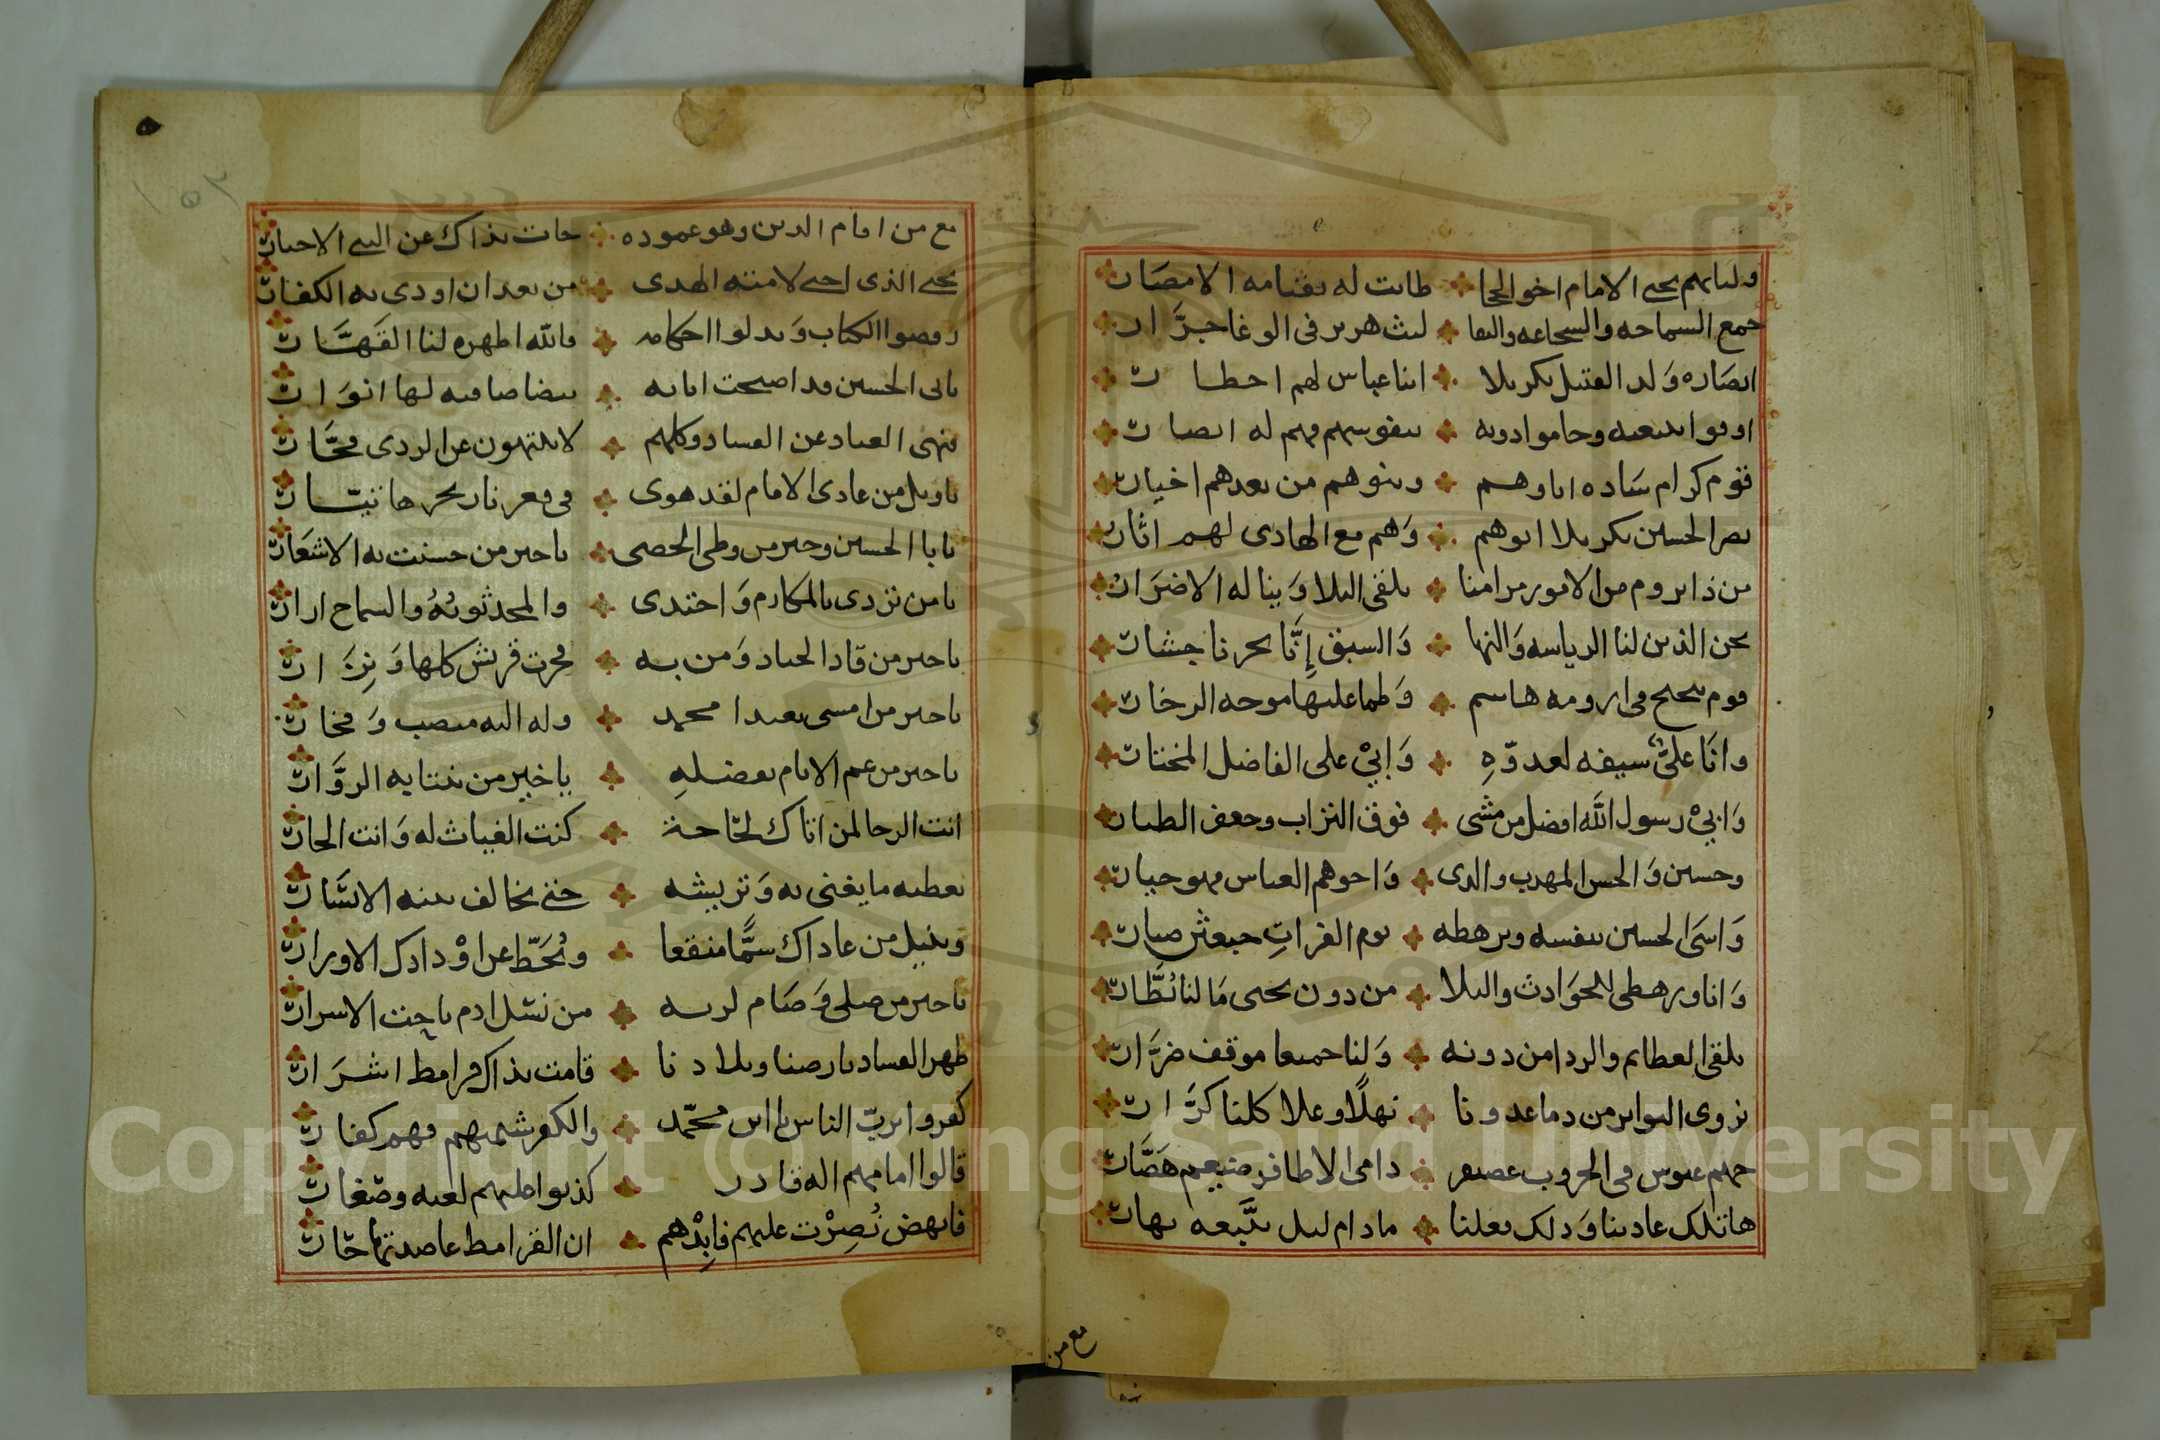 وليامهم يحيى الامام اخو الحجا طابت له بقيامه الامصار
جمع السماحه والشجاعه والتقا ليث هزبر في الوغا جرار
انصاره ولد القتيل بكربلا ابنا عباس لهم اخطار
اوفوا ببيعته وحاموا دونه بنفوسهم فهم له انصار
قوم كرام ساده اباوهم وبنوهم من بعدهم اخيار
نصر الحسين بكربلا ابوهم وهم مع الهادي لهم اثار
من ذا يروم من الامور مرامنا يلقى البلا وينا له الاضرار
نحن الذين لنا الرياسه والنها والسبق إنا بحرنا جشار
قوم تبحبح في ارومه هاشم وطما عليها موجه الزخار
وانا علي سيفه لعدوه وابي علي الفاضل المختار
وابي رسول الله افضل من مشى فوق التراب وجعفر الطيار
وحسين والحسن المهذب والدي واخوهم العباس فهو خيار
واسى الحسين بنفسه وبرهطه يوم الفرات صبار
وانا ورهطي للحوادث والبلا من دون يحيى مالنا نظار
نلقى العظائم والردا من دونه ولنا جميعا موقف ضرار
نروى البواتر من دما عدونا نهلا وعلا كلنا كرار
جهم عبوس في الحروب دامى الاظافر ضيغم هصار
هاتلك عادتنا وذلك فعلنا مادام ليل يتبعه نهار
مع من
١٥٢
مع من اقام الدين وهو عموده جات بذاك عن النبي الاخبار
يحيى الذي احيى لامته الهدى من بعد ان اودى به الكفار
رفضوا الكتاب وبدلوا احكامه فالله اظهره لنا القهار
يابى الحسين قد اصبحت ايابه بيضا صافيه لها انوار
ينهى العباد عن الفساد وكلهم لا ينتهون عن الردى فجار
ياويل من عادى الامام لقد هوى في قعر نار بحرها تيار
يابا الحسين وخير من وطي الحصى ياخير من حسنت به الاشعار
يامن تردى بالمكارم واحتدى والمجد ثوبُهُ والسماح ازار
ياخير من قاد الجياد ومن به فخرت قريش كلها ونزار
ياخير من امسى بعيدا محمد وله اليه منصب وفخار
ياخير من عم الانام بفضله ياخير من تنتابه الزوار
انت الرجا لمن اتاك لحاجة كنت الغياث له وانت الجار
تعطيه ما يغني به وتريشه حتى تخالف بيته الايسار
وتنيل من عاداك سما منقعا وتُحَطّ عن اودادك الاوزار
ياخير من صلى وصام لربه من نسل ادم الاسرار
ظهر الفساد بارضنا وبلادنا قامت بذاك قرامط اشرار
كفروا برب الناس يا ابن محمد والكفر شيمتهم فهم كفار
قالوا امامهم اله قادر كذبوا عليهم لعنه وصغار
فانهض نُصِرْت عليهم فابِدْهم ان القرامط